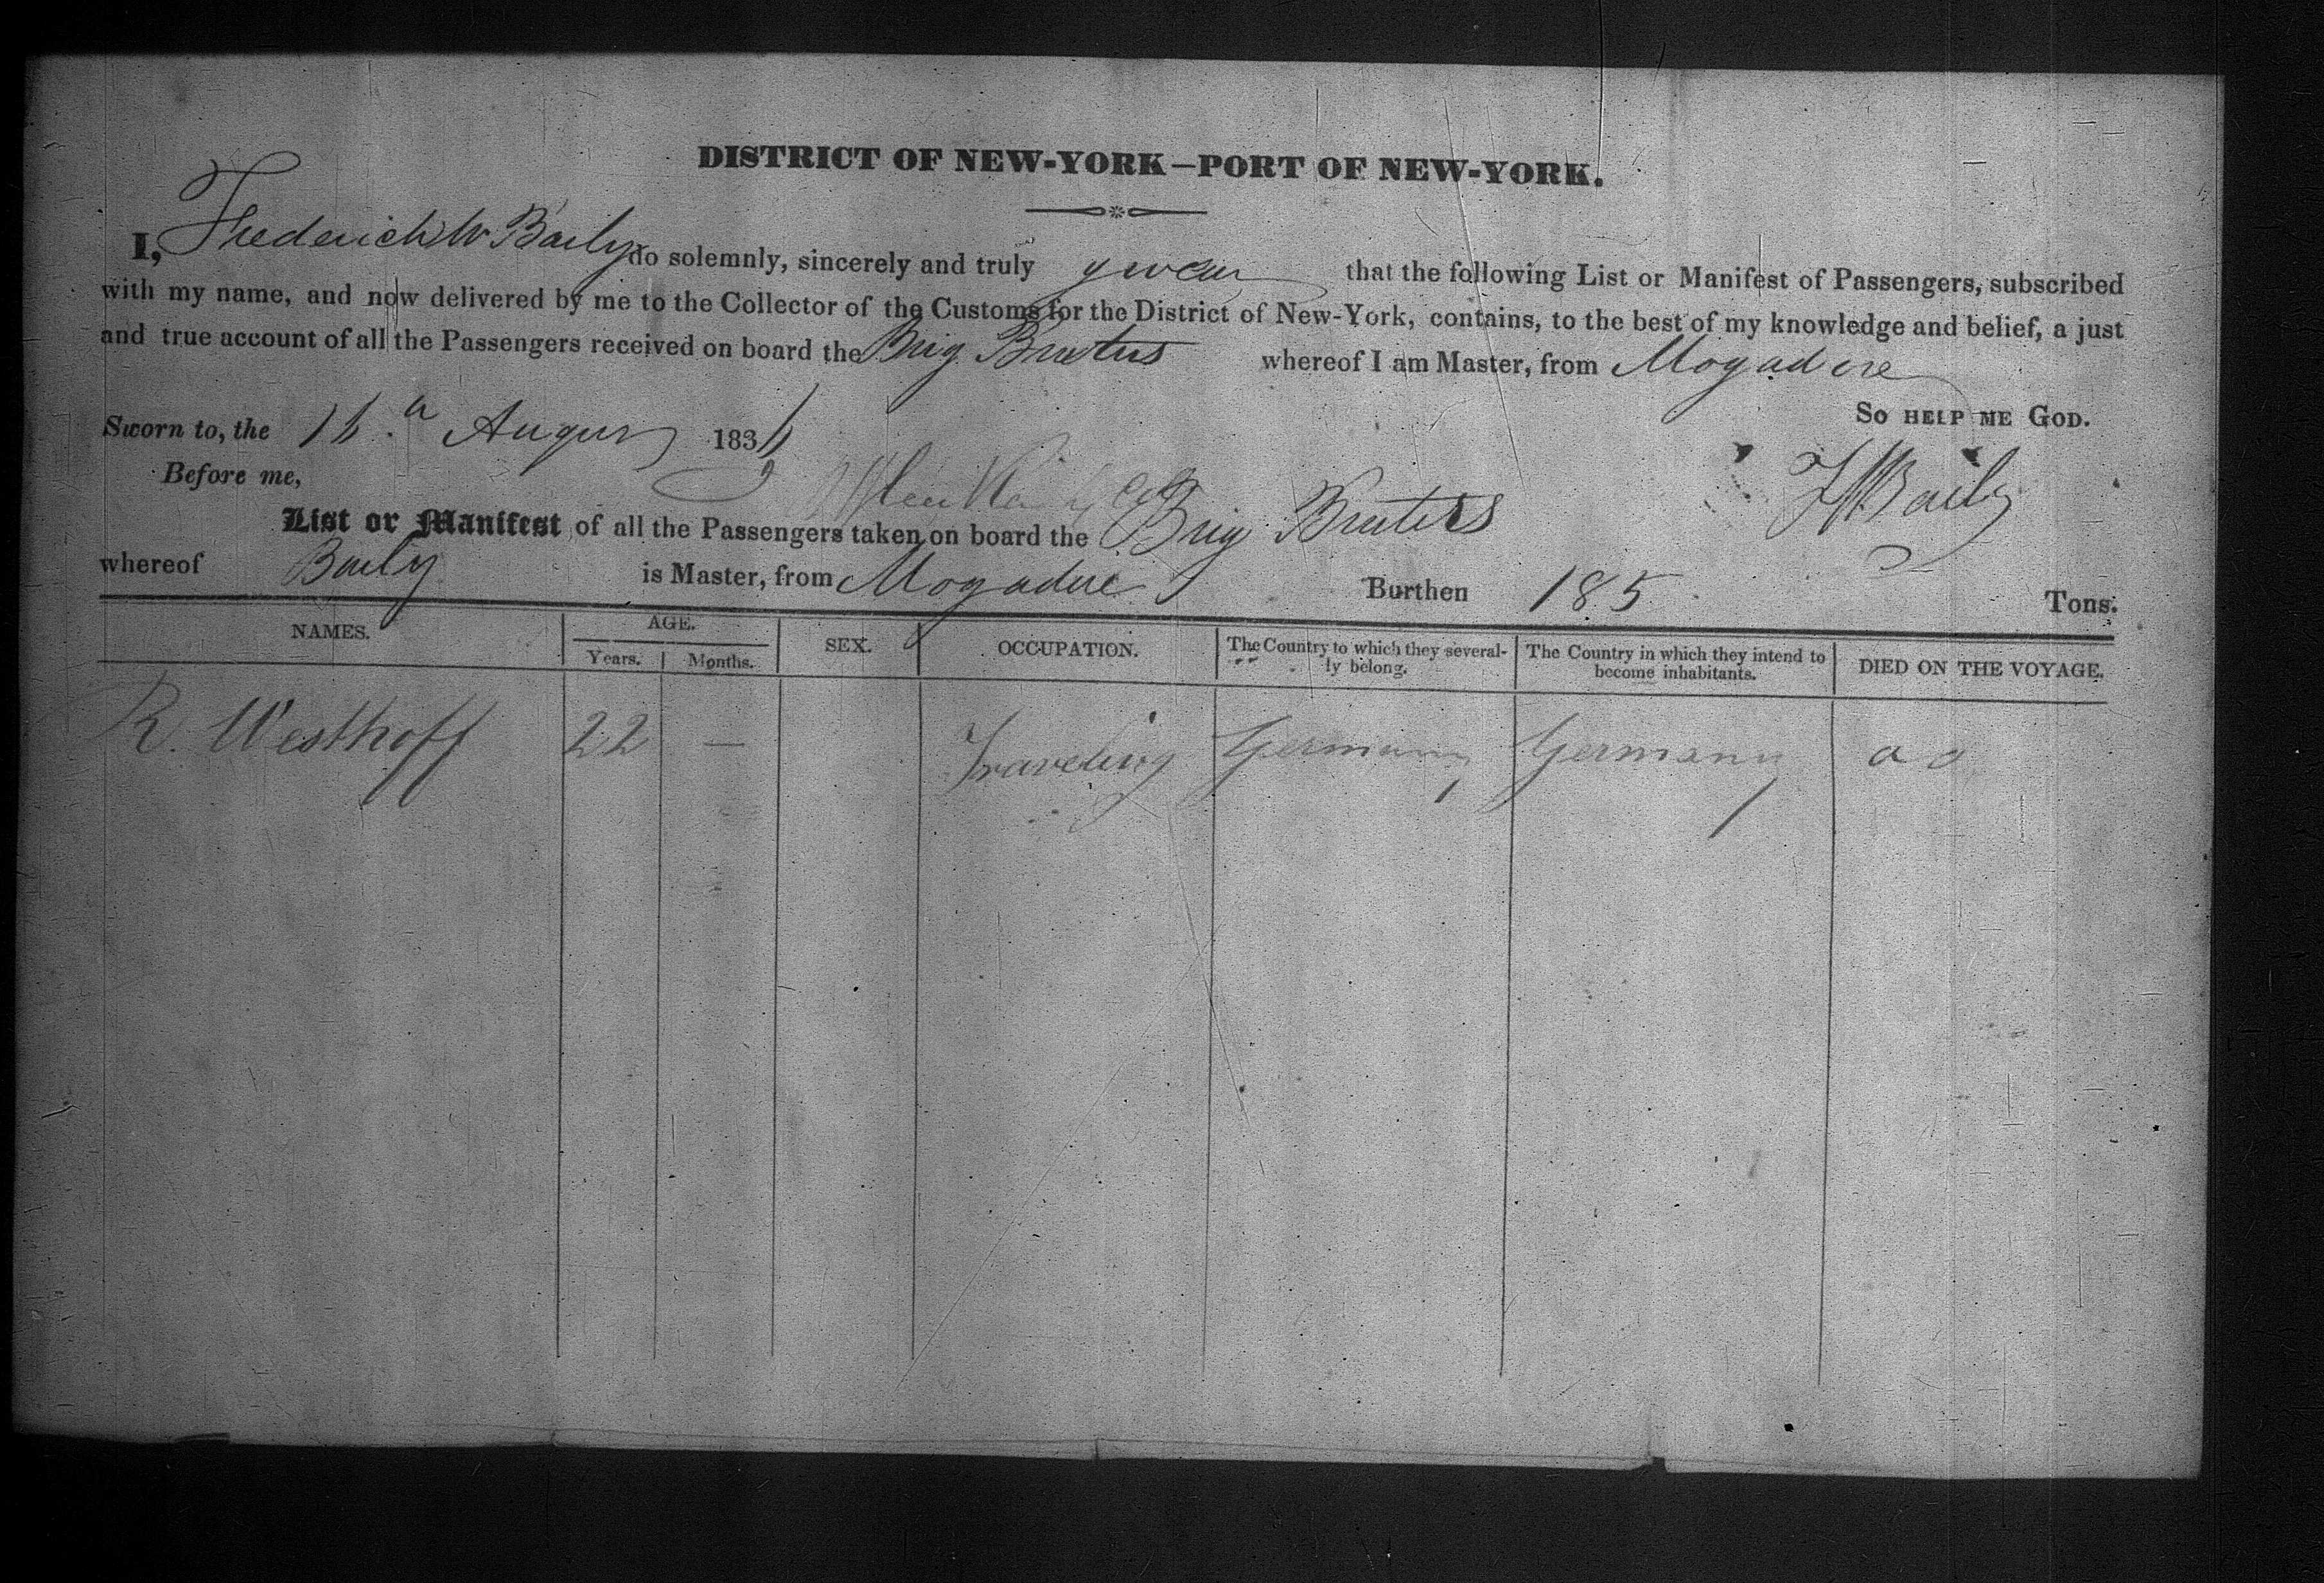 DISTRICT OF NEW-YORK—PORT OF NEW-YORK.
I, Frederick W Baily do solemnly, sincerely and truly swear that the following List or Manifest of Passengers, subscribed
with my name, and now delivered by me to the Collector of the Customs for the District of New-York, contains, to the best of my knowledge and belief, a just
and true account of all the Passengers received on board the Brig Brutus whereof I am Master, from Mogadore
SO HELP ME GOD.
Sworn to, the August 183
Before me,
F W Baily
List or Manifest of all the Passengers taken on board the Brig Brutus
whereof Baily is Master, from Mogadore Burthen 185 Tons.
NAMES. AGE. SEX. OCCUPATION. The Country to which they several- The Country in which they intend to DIED ON THE VOYAGE.
Years. Months. ly belong. become inhabitants.
R. Westhoff 22 — Traveling Germany Germany